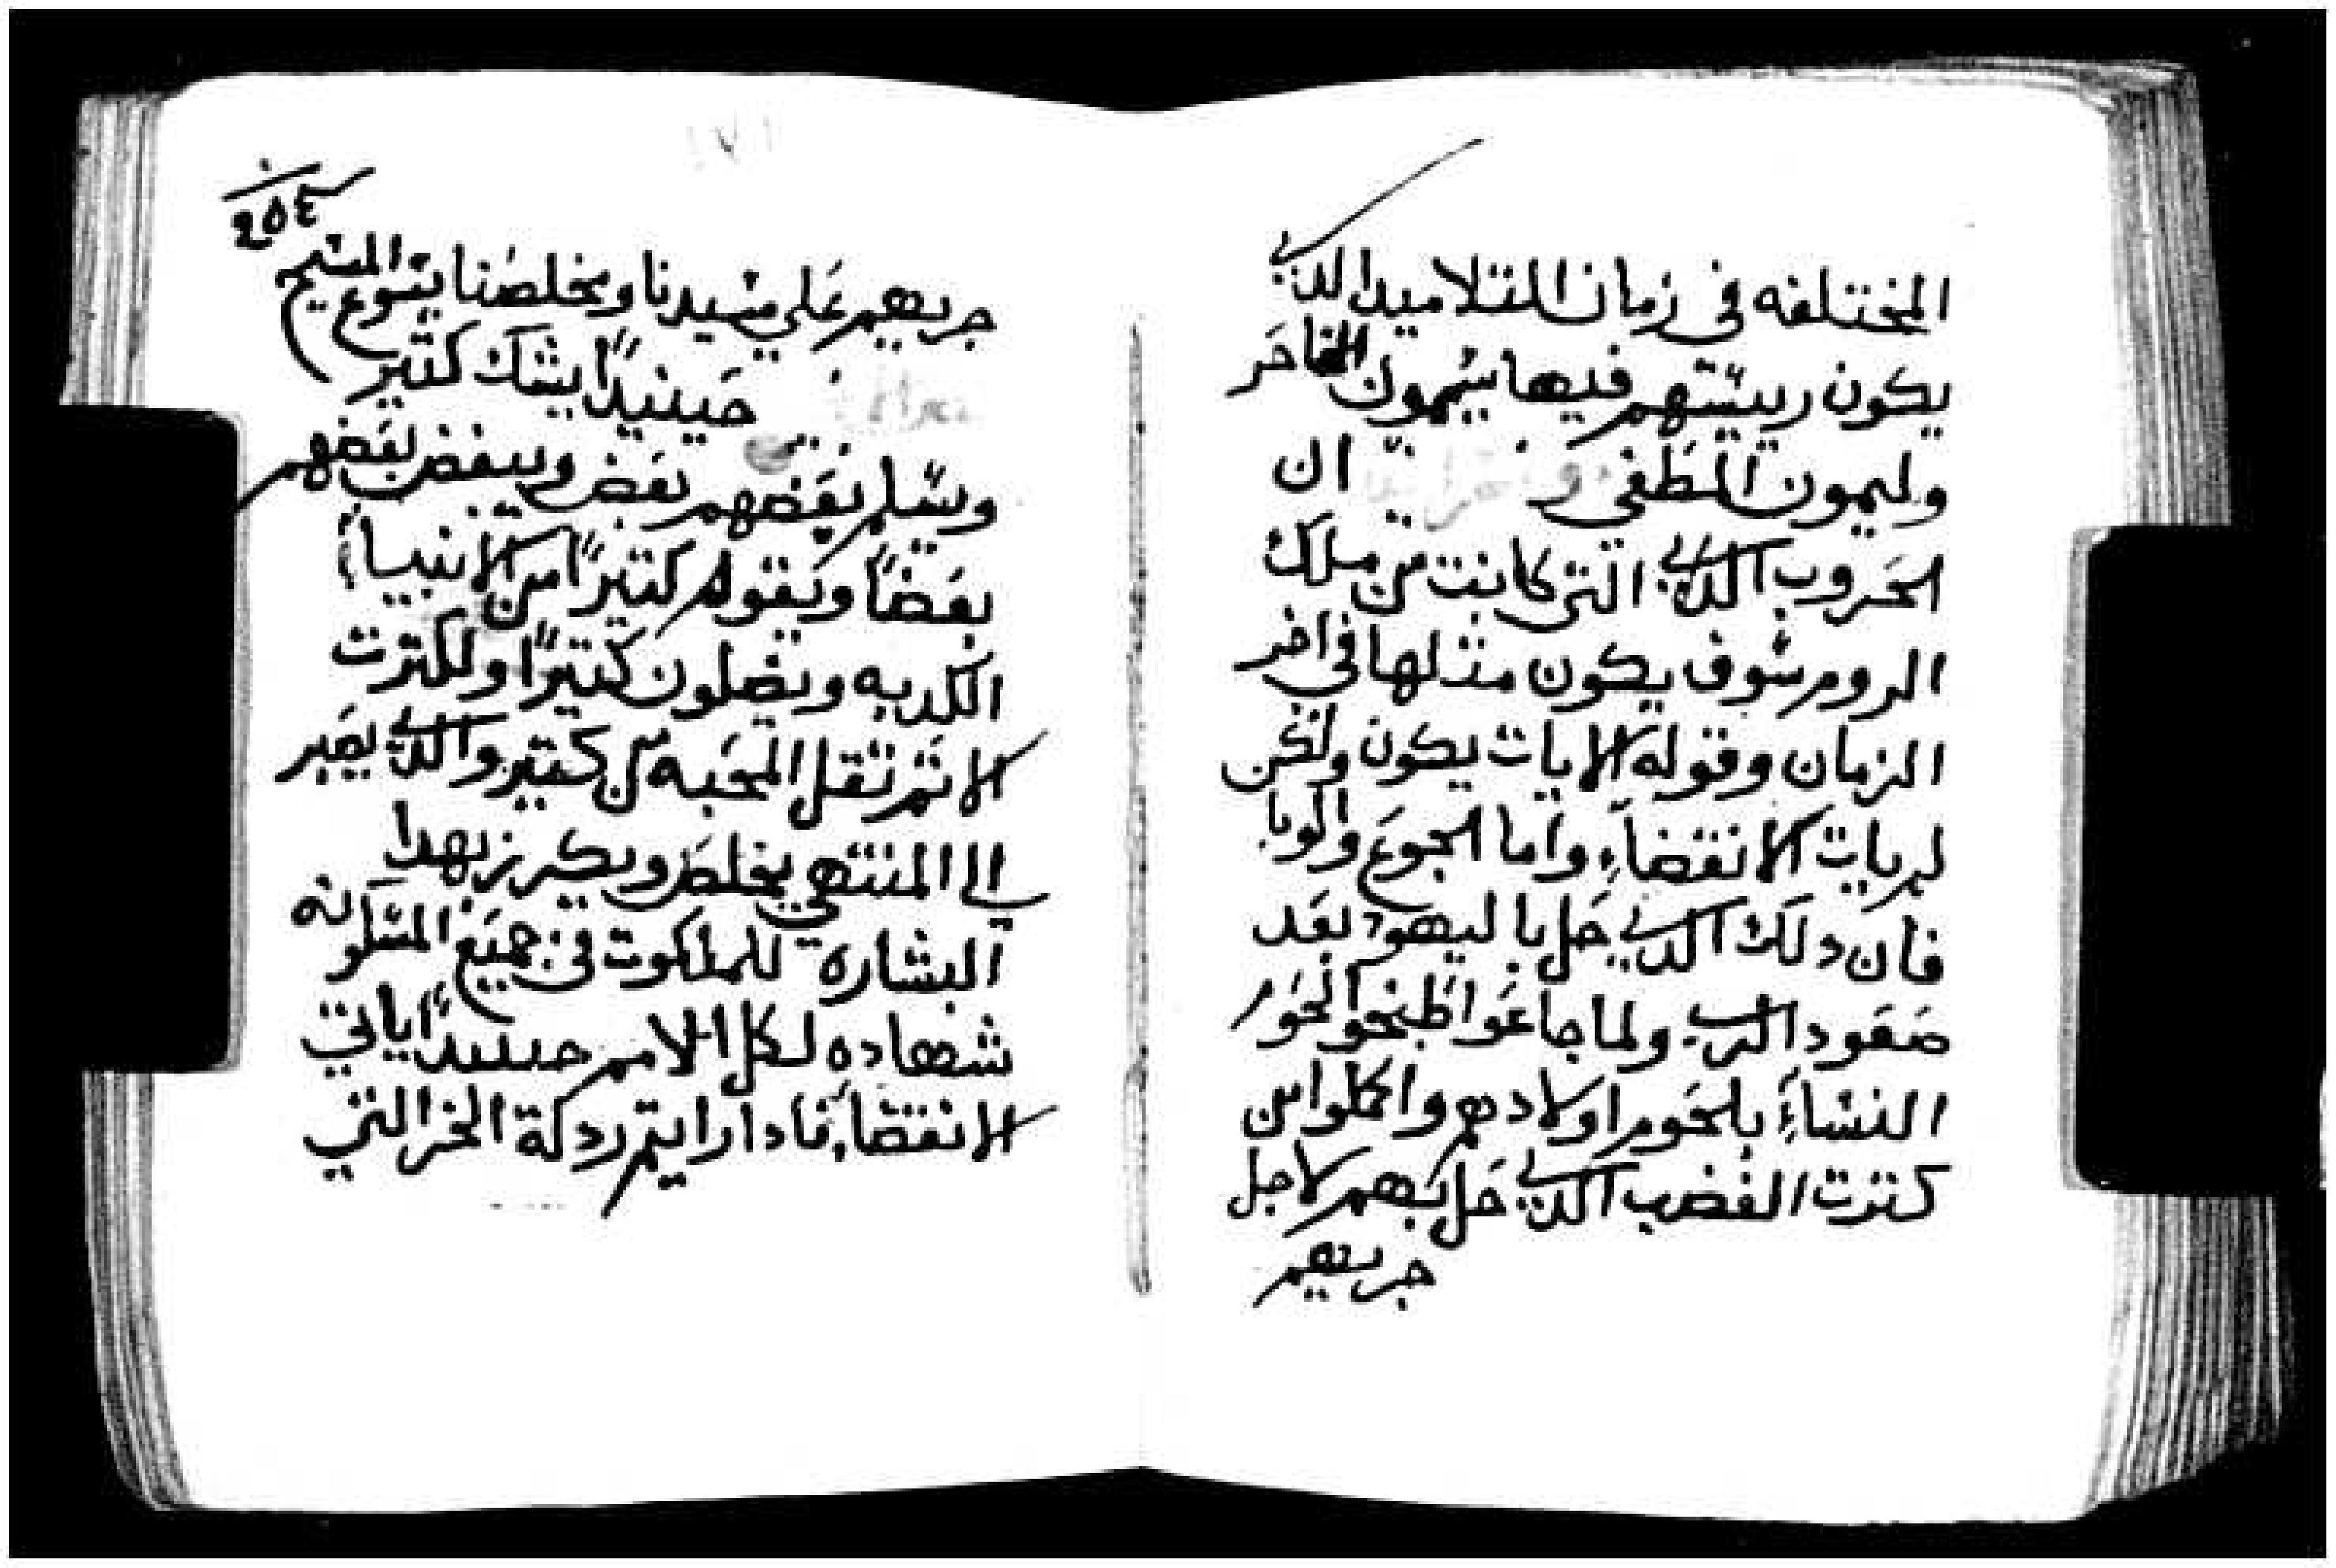 المختلفه في زمان التلاميد الدي
يكون رييسهم فيها سيمون الساحر
وليمون المطغي و ان
الحروب الدي التي كانت من ملك
الروم سوف يكون مثلها في اخر
الزمان وقوله الايات يكون ولكن
لم يات الانقضاء واما الجوع والوبا
فان دلك الدي حل با ليهود بعد
صعود الرب ولما جاعوا طبخوا لحوم
النساء بلحوم اولادهم واكلوا من
كترت الغضب الدي حل بهم لاجل
جريهم
٢٥٤
جريهم علي سيدنا ومخلصنا يسوع المسيح
حينيدا يشك كثير
ويسلم بعضهم بعض ويبغض بعضهم
بعضا ويقوم كثيرا من الانبياء
الكدبه ويضلون كثيرا ولكترت
الاتم تقل المحبه من كثير والدي يصبر
الي المنتهي يخلص ويكرز بهدا
البشاره للملكوت في جميع المسكونه
شهاده لكل الامم حينيدا ياتي
الانقضاء فادا رايتم ردكة الخر التي